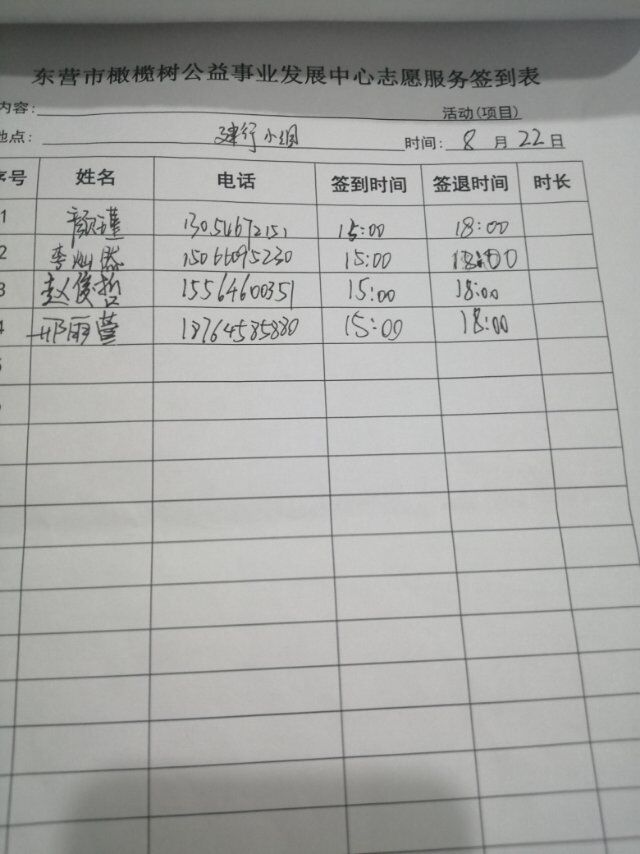 东营市橄榄树公益事业发展中心志愿服务签到表
内容: 活动(项目)
地点: 建行小组 时间: 8 月 22 日
序号 姓名 电话 签到时间 签退时间 时长
1 颜瑾 13054672151 15:00 18:00
2 李灿然 15066095230 15:00 18:00
3 赵俊哲 15564600351 15:00 18:00
4 邢雨萱 18764585880 15:00 18:00